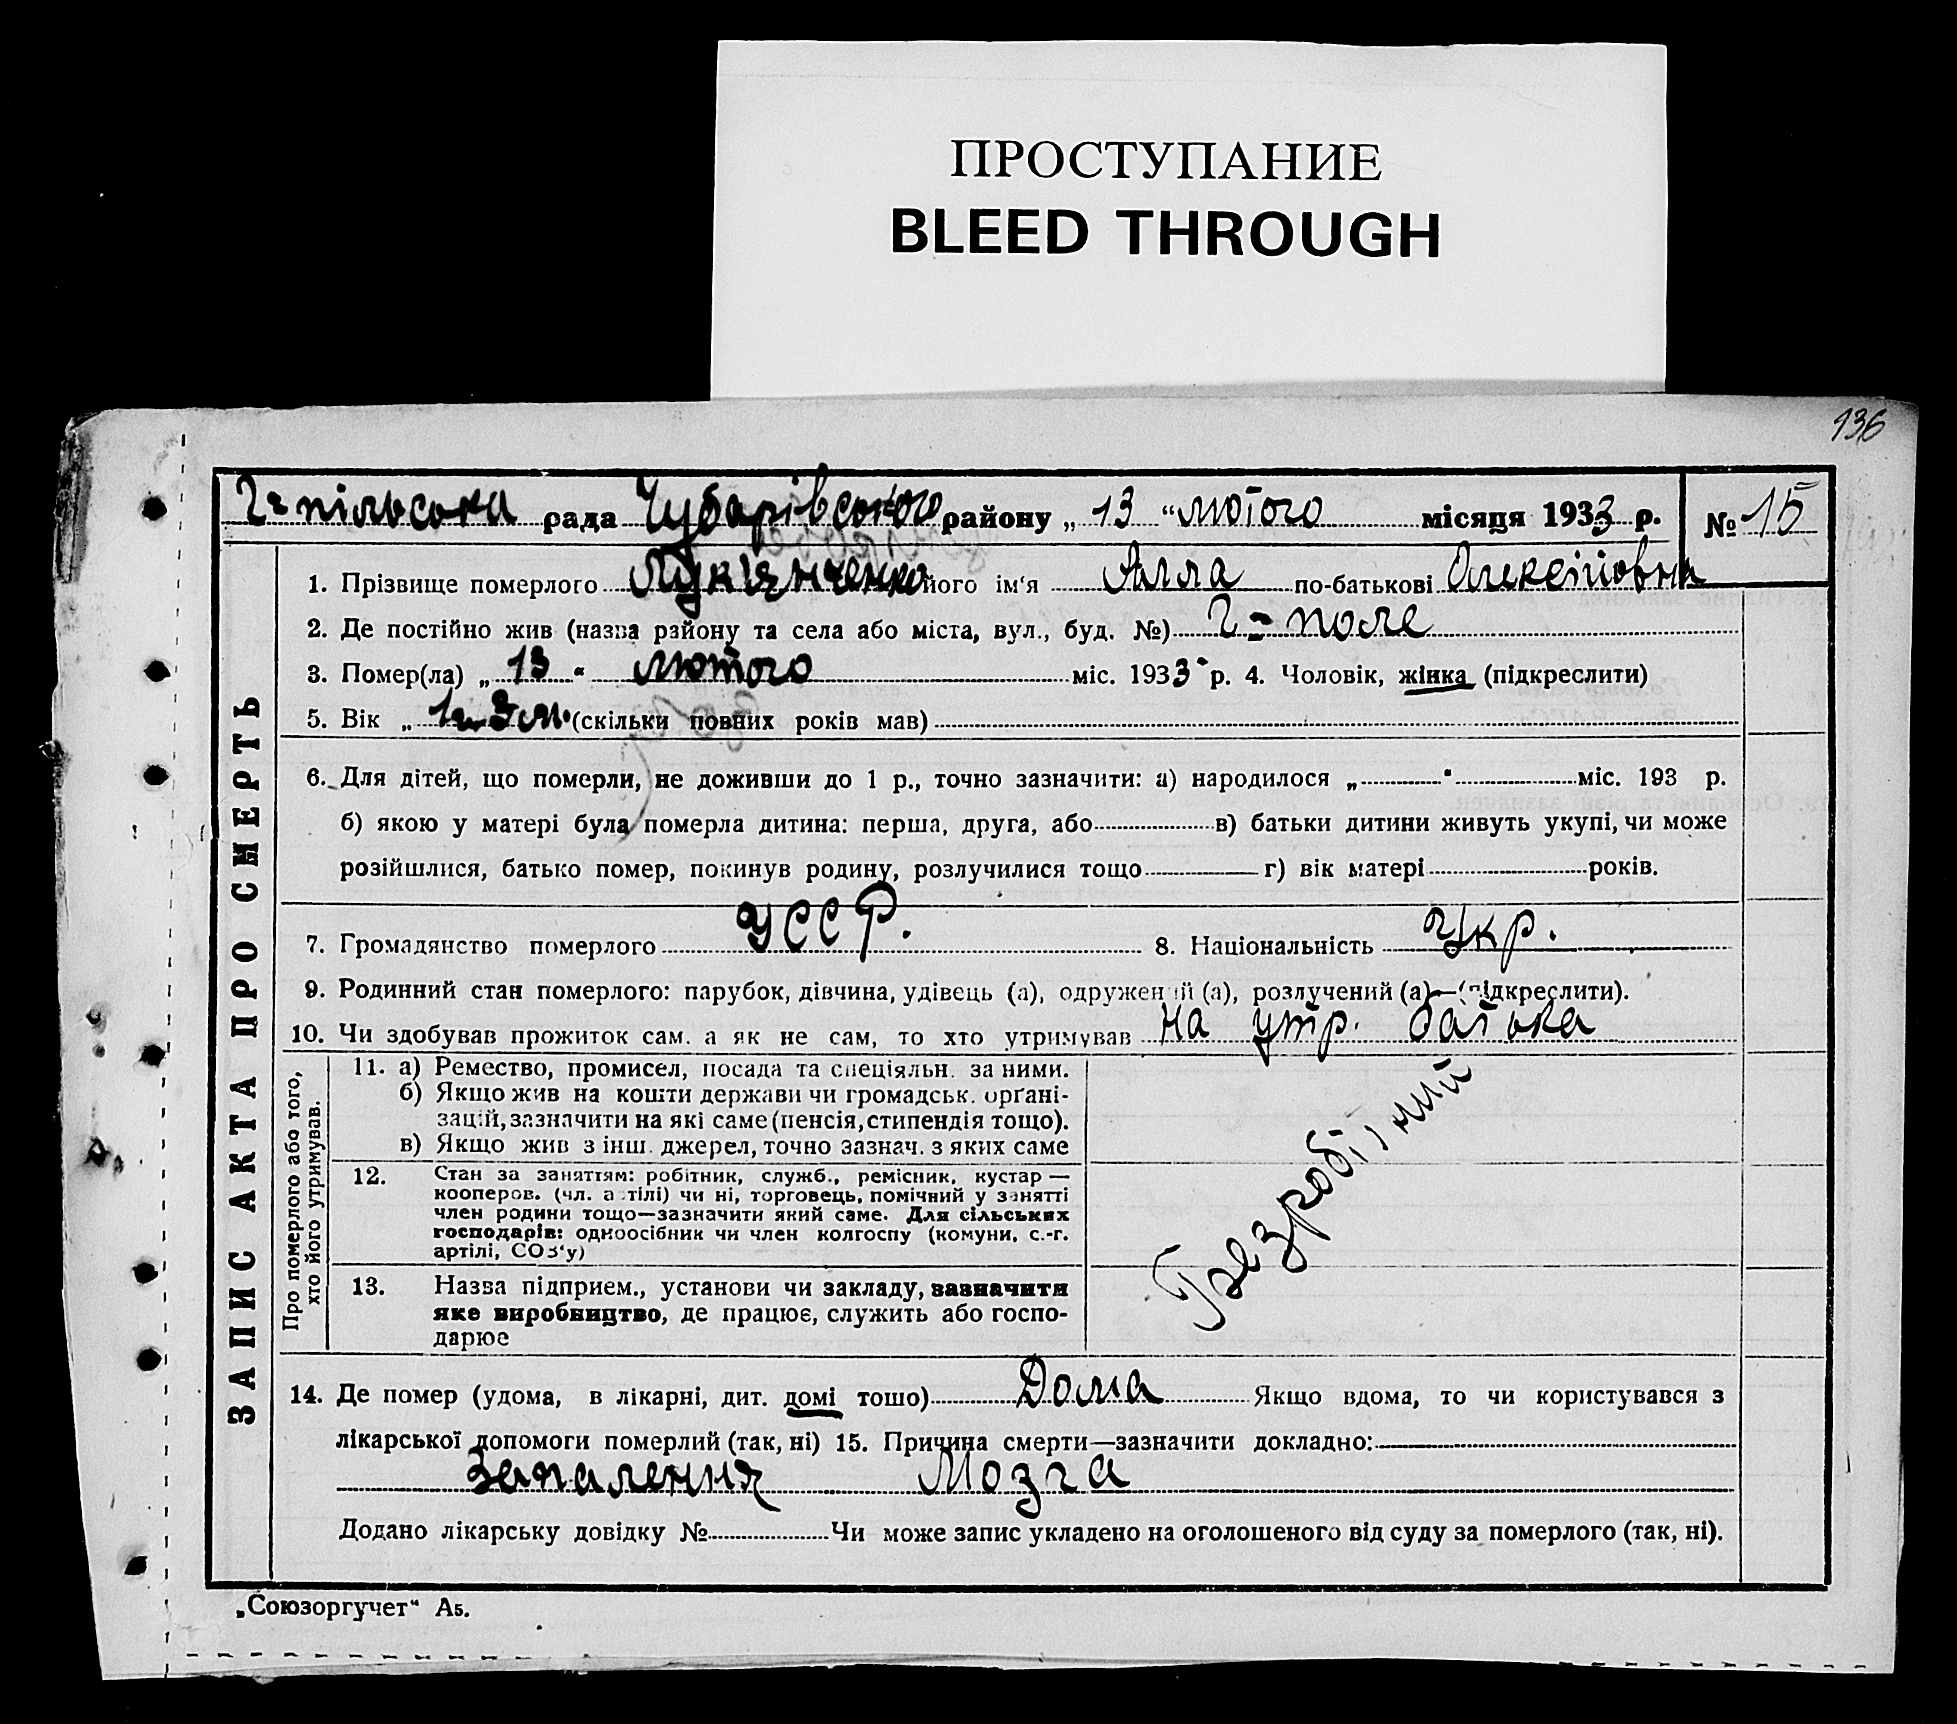 ПРОСТУПАНИЕ
BLEED THROUGH
136
Г-пільська рада Чубарівського району „ 13 “ лютого місяця 1933 р. № 15
ЗАПИС АКТА ПРО СМЕРТЬ
1. Прізвище померлого Лук'янченко його ім'я Алла по-батькові Олексіївна
2. Де постійно жив (назва району та села або міста, вул., буд. №) Г-поле
3. Помер(ла) „ 13 “ лютого міс. 1933 р. 4. Чоловік, жінка (підкреслити)
5. Вік „ 3 м. (скільки повних років мав)
6. Для дітей, що померли, не доживши до 1 р., точно зазначити: а) народилося „ “ міс. 193 р.
б) якою у матері була померла дитина: перша, друга, або в) батьки дитини живуть укупі, чи може
розійшлися, батько помер, покинув родину, розлучилися тощо г) вік матері років.
7. Громадянство померлого УССР. 8. Національність Укр.
9. Родинний стан померлого: парубок, дівчина, удівець (а), одружений (а), розлучений (а)—(підкреслити).
10. Чи здобував прожиток сам. а як не сам, то хто утримував На утр. батька
Про померлого або того,
хто його утримував.
11. а) Ремество, промисел, посада та спеціяльн. за ними.
б) Якщо жив на кошти держави чи громадськ. орґані-
зацій, зазначити на які саме (пенсія, стипендія тощо).
в) Якщо жив з інш. джерел, точно зазнач. з яких саме
12. Стан за заняттям: робітник, служб., ремісник, кустар —
кооперов. (чл. артілі) чи ні, торговець, помічний у занятті
член родини тощо—зазначити який саме. Для сільських
господарів: одноосібник чи член колгоспу (комуни, с.-г.
артілі, СОЗ'у)
13. Назва підприєм., установи чи закладу, зазначити
яке виробництво, де працює, служить або госпо-
дарює
Безробітний
14. Де помер (удома, в лікарні, дит. домі тошо) Дома Якщо вдома, то чи користувався з
лікарської допомоги померлий (так, ні) 15. Причина смерти—зазначити докладно:
Запалення Мозга
Додано лікарську довідку № Чи може запис укладено на оголошеного від суду за померлого (так, ні).
„Союзоргучет“ А5.